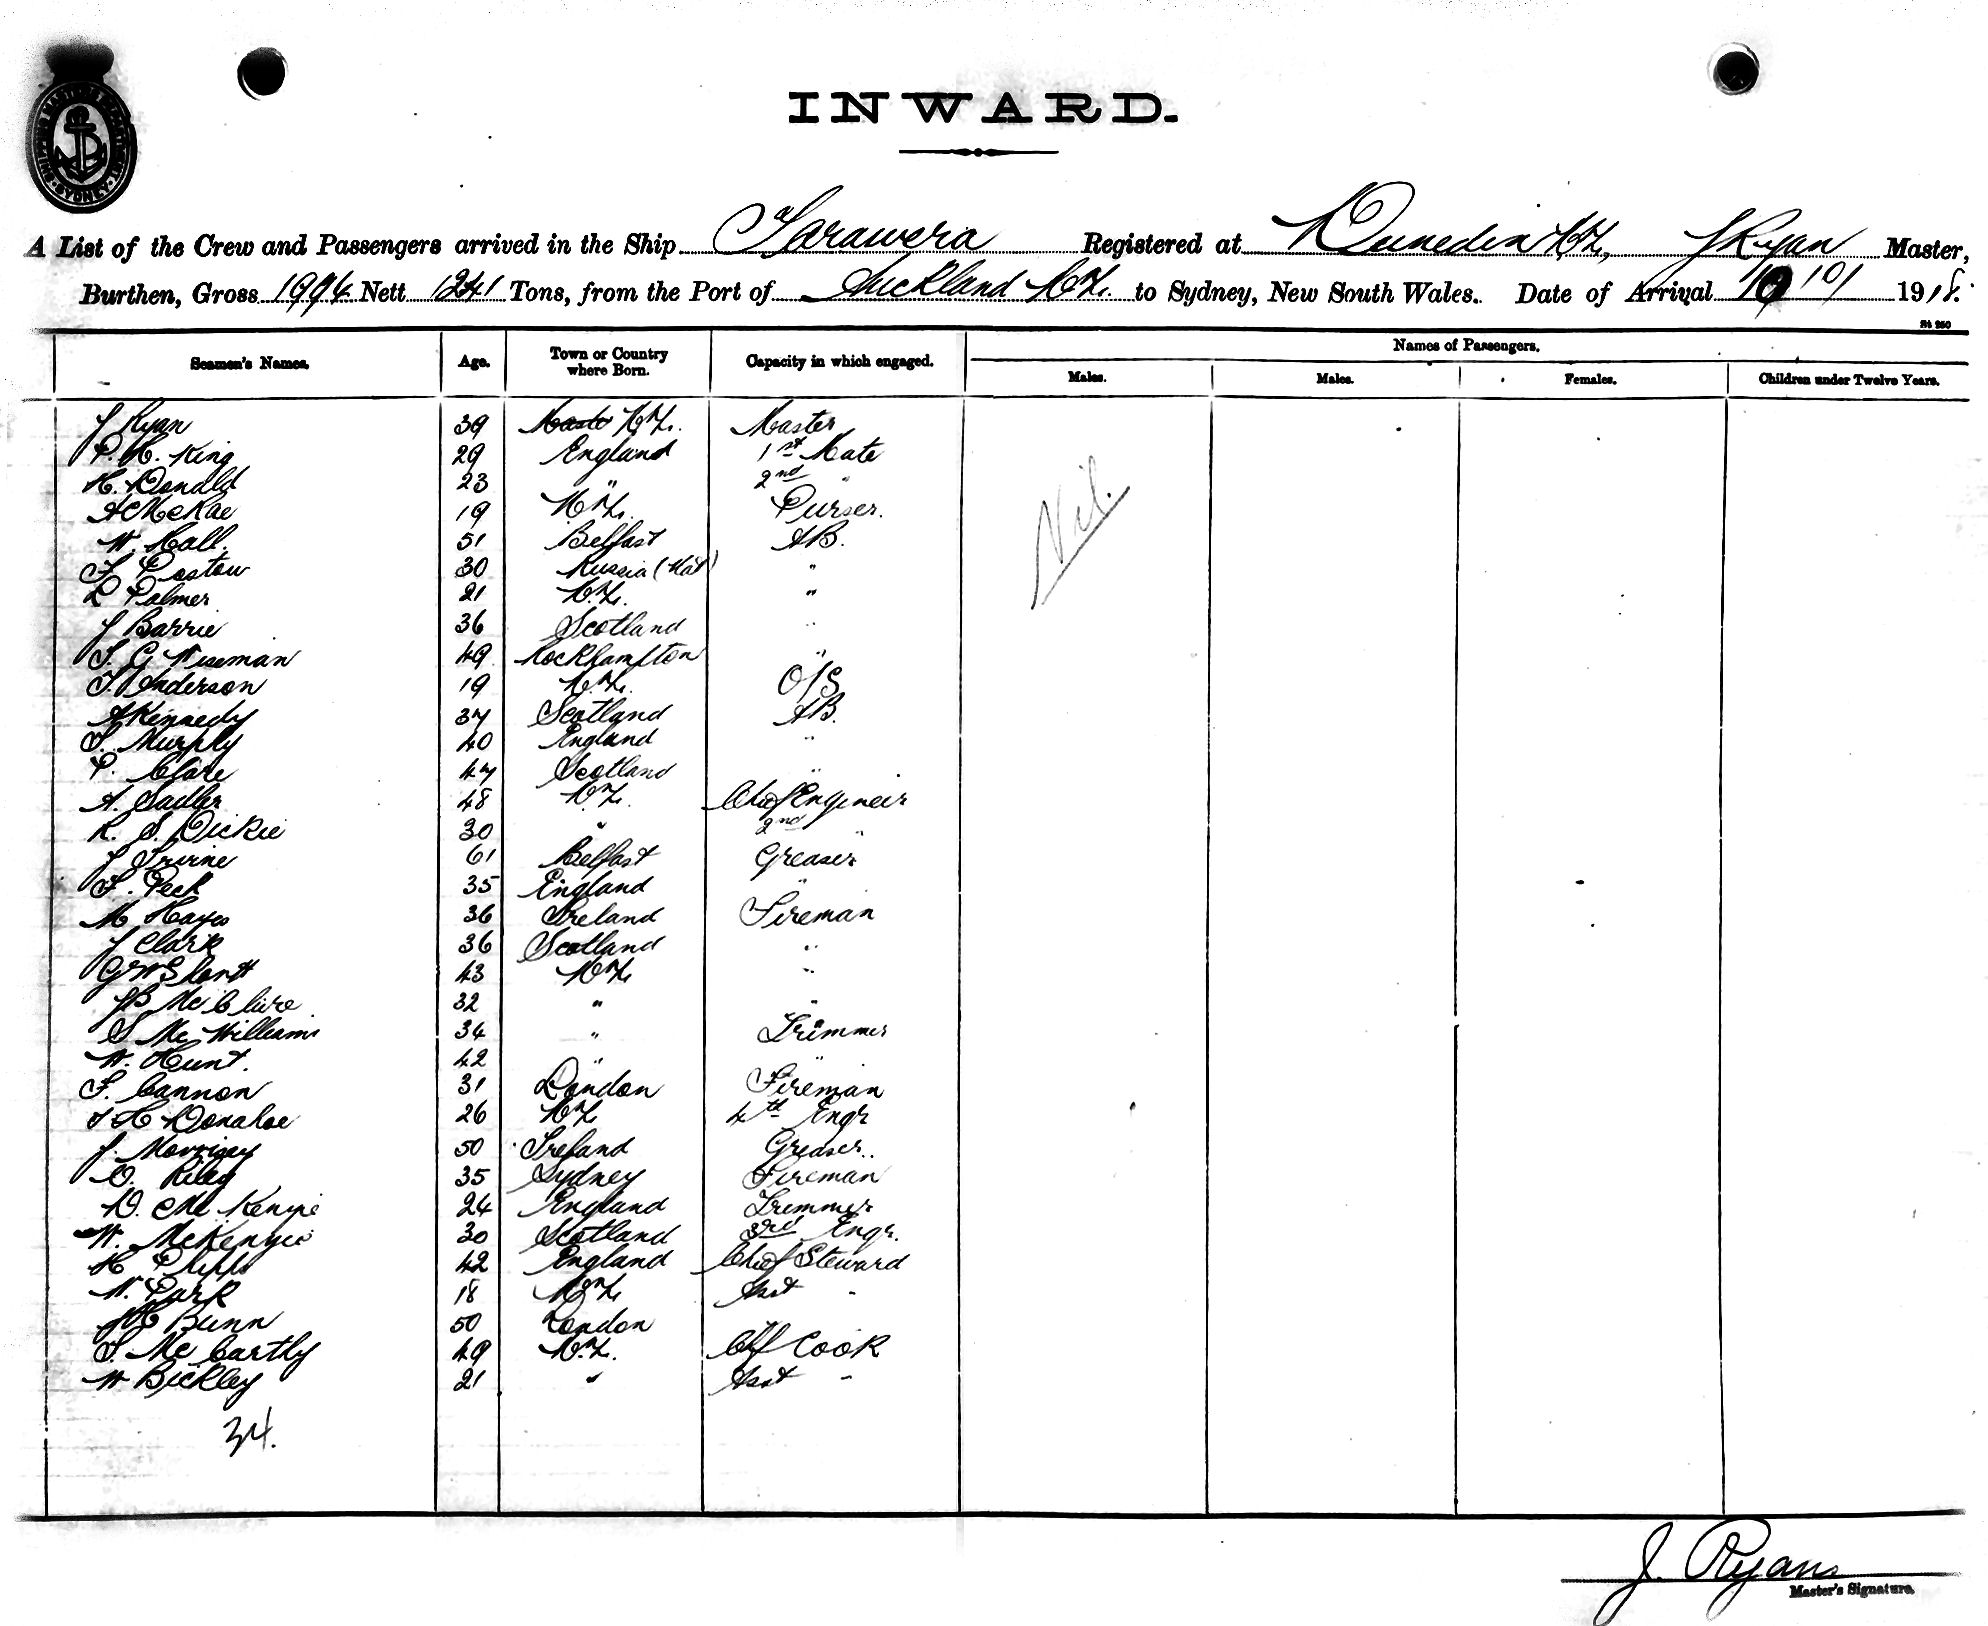 INWARD.
A List of the Crew and Passengers arrived in the Ship Tarawera Registered at Dunedin N.Z., J Ryan Master,
Burthen, Gross 1994 Nett 1241 Tons, from the Port of Auckland N.Z. to Sydney, New South Wales. Date of Arrival 1918.
Seamen's Names. Age. Town or Country where Born. Capacity in which engaged. Names of Passengers.
Males. Males. Females. Children under Twelve Years.
J Ryan 39 N.Z. Master
P. H. King 29 England 1st Mate
H. Donald 23 " 2nd "
A McRae 19 N.Z. Purser.
W. Hall. 51 Belfast AB.
F Postow 30 Russia (Nat) "
L Palmer 21 N.Z. "
J Barrie 36 Scotland "
S. G Wiseman 49 Rockhampton "
T. Anderson 19 N.Z. O/S
A Kennedy 37 Scotland AB.
S. Murphy 40 England "
P. Clare 47 Scotland "
A. Sadler 48 N.Z. Chief Engineer
R. S. Dickie 30 " 2nd "
J Irvine 61 Belfast Greaser
F. Peck 35 England "
M Hayes 36 Ireland Fireman
J Clark 36 Scotland "
43 N.Z. "
JB McClure 32 " "
S Mc Williams 34 " Trimmer
W. Hunt. 42 " "
F. Cannon 31 London Fireman
J H Donahoe 26 N.Z. 4th Engr
J. Morrisey 50 Ireland Greaser.
O. Riley 35 Sydney Fireman
D. McKenzie 24 England Trimmer
W. McKenzie 30 Scotland 3rd Engr.
H Phipps 42 England Chief Steward
W. Park 18 N.Z. Asst "
H Bunn 50 London
S. McCarthy 49 N.Z. Chf Cook
W Bickley 21 " Asst "
Nil.
34.
J. Ryan
Master's Signature.